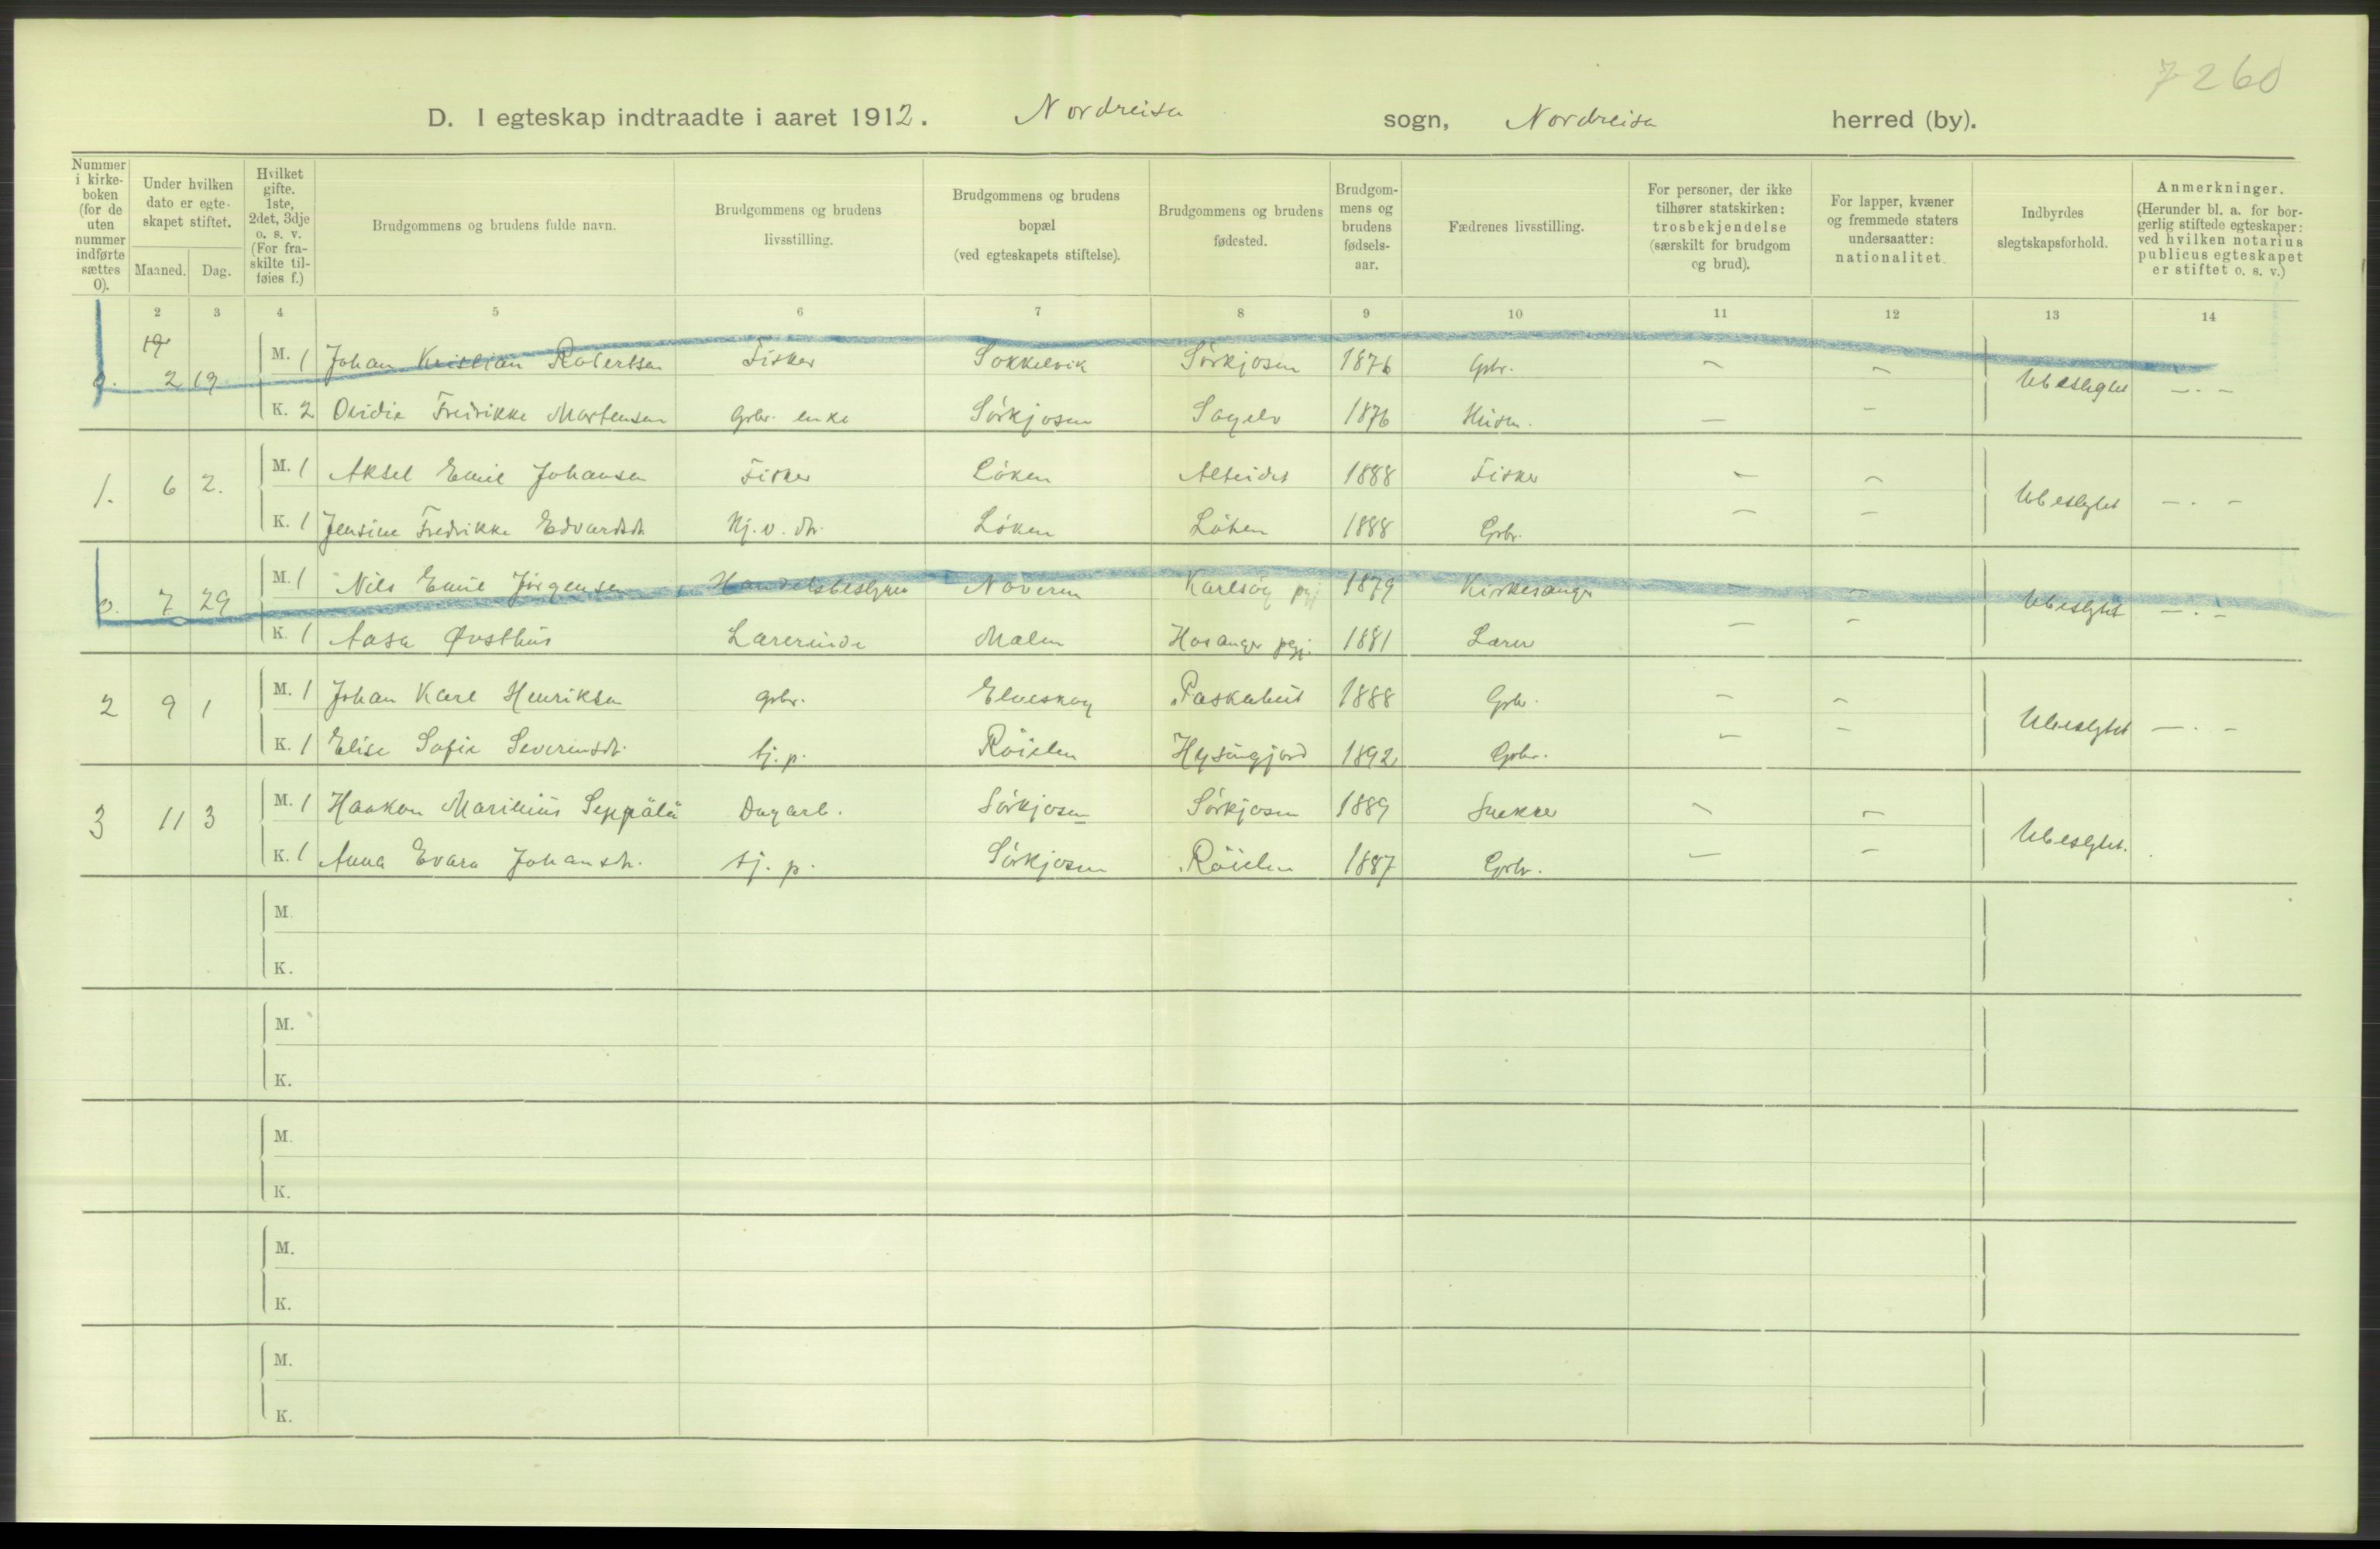 7260
D. I egteskap indtraadte i aaret 1912. Nordreisa sogn, Nordreisa herred (by).
Nummer i kirkeboken (for de uten nummer indførte sættes 0).
Under hvilken dato er egteskapet stiftet.
Maaned. Dag.
Hvilket gifte. 1ste, 2det, 3dje o. s. v. (For fraskilte tilføies f.)
Brudgommens og brudens fulde navn.
Brudgommens og brudens livsstilling.
Brudgommens og brudens bopæl (ved egteskapets stiftelse).
Brudgommens og brudens fødested.
Brudgommens og brudens fødselsaar.
Fædrenes livsstilling.
For personer, der ikke tilhører statskirken: trosbekjendelse (særskilt for brudgom og brud).
For lapper, kvæner og fremmede staters undersaatter: nationalitet.
Indbyrdes slegtskapsforhold.
Anmerkninger. (Herunder bl. a. for borgerlig stiftede egteskaper: ved hvilken notarius publicus egteskapet er stiftet o. s. v.)
2 3 4 5 6 7 8 9 10 11 12 13 14
19
0. 2 19 M. 1 Johan Kristian Robertsen Fisker Sokkelvik Sörkjosen 1876 Gbr. – – Ubeslegtet – . –
K. 2 Ovidie Fredrikke Mortensen Gbr. enke Sörkjosen Sagelv 1876 Husm. – –
1. 6 2. M. 1 Aksel Emil Johansen Fisker Löken Alteidet 1888 Fisker – – Ubeslegtet – . –
K. 1 Jensine Fredrikke Edvardsdt. Hj. v. dt. Löken Löken 1888 Gbr. – –
0. 7 29 M. 1 Nils Emil Jörgensen Handelsbestyrer Naveren Karlsöy pgj 1879 Kirkesanger – – Ubeslegtet – . –
K. 1 Aasa Øvsthus Lærerinde Malen Hosanger pgj. 1881 Lærer – –
2 9 1 M. 1 Johan Karl Henriksen gbr. Elveskog Paskabut 1888 Gbr. – – Ubeslegtet – . –
K. 1 Elise Sofie Severinsdt. tj. p. Röielen Hysingjord 1892 Gbr. – –
3 11 3 M. 1 Haakon Marinius Seppälä Dagarb. Sörkjosen Sörkjosen 1889 Snekker – – Ubeslegtet.
K. 1 Anna Evara Johansdt. tj. p. Sörkjosen Röielen 1887 Gbr. – –
M.
K.
M.
K.
M.
K.
M.
K.
M.
K.